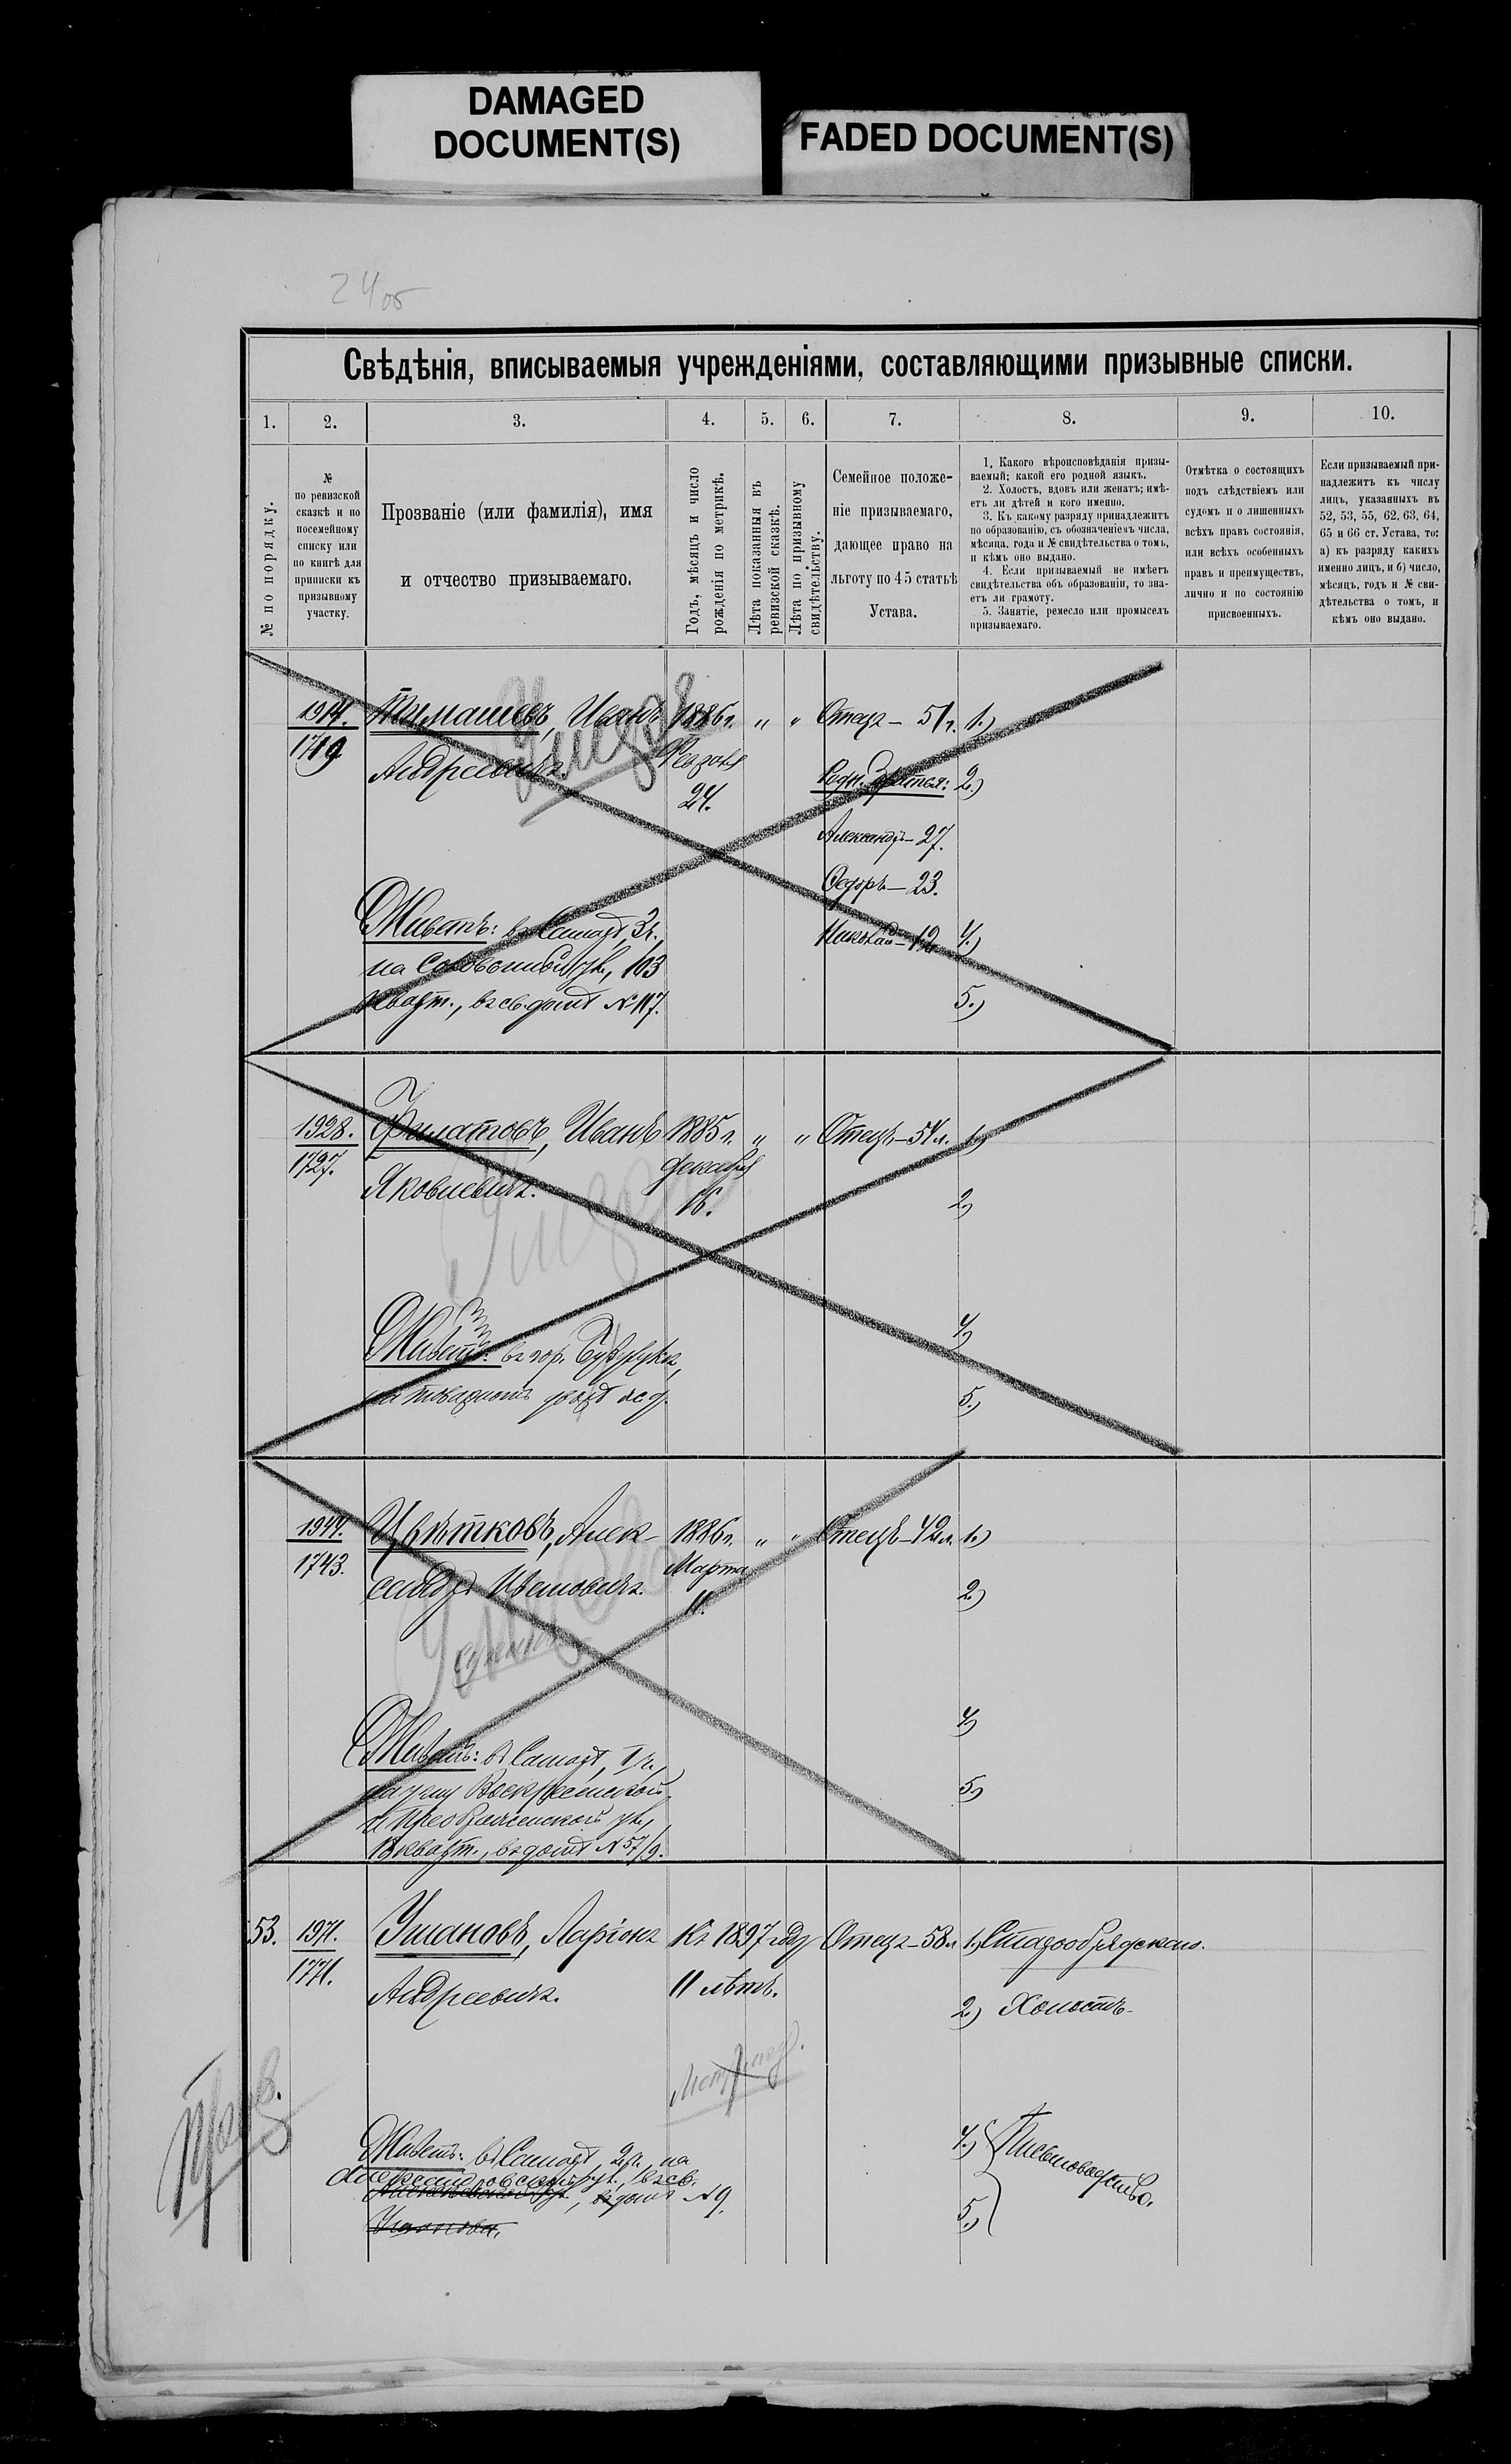 DAMAGED
DOCUMENT(S)
FADED DOCUMENT(S)
24 об
Свѣдѣнія, вписываемыя учрежденіями, составляющими призывные списки.
1. 2. 3. 4. 5. 6. 7. 8. 9. 10.
№ по порядку.
№
по ревизской
сказкѣ и по
посемейному
списку или
по книгѣ для
приписки къ
призывному
участку.
Прозваніе (или фамилія), имя
и отчество призываемаго.
Годъ, мѣсяцъ и число
рожденія по метрикѣ.
Лѣта показанныя въ
ревизской сказкѣ.
Лѣта по призывному
свидѣтельству.
Семейное положе-
ніе призываемаго,
дающее право на
льготу по 45 статьѣ
Устава.
1. Какого вѣроисповѣданія призы-
ваемый; какой его родной языкъ.
2. Холостъ, вдовъ или женатъ; имѣ-
етъ ли дѣтей и кого именно.
3. Къ какому разряду принадлежитъ
по образованію, съ обозначеніемъ числа,
мѣсяца, года и № свидѣтельства о томъ,
и кѣмъ оно выдано.
4. Если призываемый не имѣетъ
свидѣтельства объ образованіи, то зна-
етъ ли грамоту.
5. Занятіе, ремесло или промыселъ
призываемаго.
Отмѣтка о состоящихъ
подъ слѣдствіемъ или
судомъ и о лишенныхъ
всѣхъ правъ состоянія,
или всѣхъ особенныхъ
правъ и преимуществъ,
лично и по состоянію
присвоенныхъ.
Если призываемый при-
надлежитъ къ числу
лицъ, указанныхъ въ
52, 53, 55, 62, 63, 64,
65 и 66 ст. Устава, то:
а) къ разряду какихъ
именно лицъ, и б) число,
мѣсяцъ, годъ и № сви-
дѣтельства о томъ, и
кѣмъ оно выдано.
1914. Тимашевъ, Иванъ 1886 г. " " Отецъ – 51 г. 1.)
1719 Андреевичъ. 24.
Умеръ
Родн. братья: 2.)
Александръ – 27.
Ѳедоръ – 23.
Николай – 12. 4.)
Живетъ: въ Самарѣ, 3 ч.,
на ул., 103
кварт., въ св. домѣ № 117.
5.)
1928. Филатовъ, Иванъ 1885 г. " " Отецъ – 54 л. 1.)
1727. Яковлевичъ. декабря
16. 2)
Умеръ
4)
Живетъ: въ гор. Бузулукѣ,
на товарномъ дворѣ ж. д.
5.)
1944. Цвѣтковъ, Алек- 1886 г. " " Отецъ – 42 л. 1.)
1743. сандръ Ивановичъ. Марта
11. 2)
Умеръ
4)
Живетъ: въ Самарѣ, 1 ч.,
на углу Воскресенской
и Преображенской ул.,
кварт., въ домѣ № 57/9.
5)
53. 1971. Ушановъ, Ларіонъ Къ 1897 году Отецъ – 58 л. 1.) Старообрядская.
1771. Андреевичъ. 11 лѣтъ.
2.) Холостъ.
Живетъ: въ Самарѣ, 2 ч., на
Александровской ул., въ св.
домѣ № 9.
4.) Письмоводство.
5.)